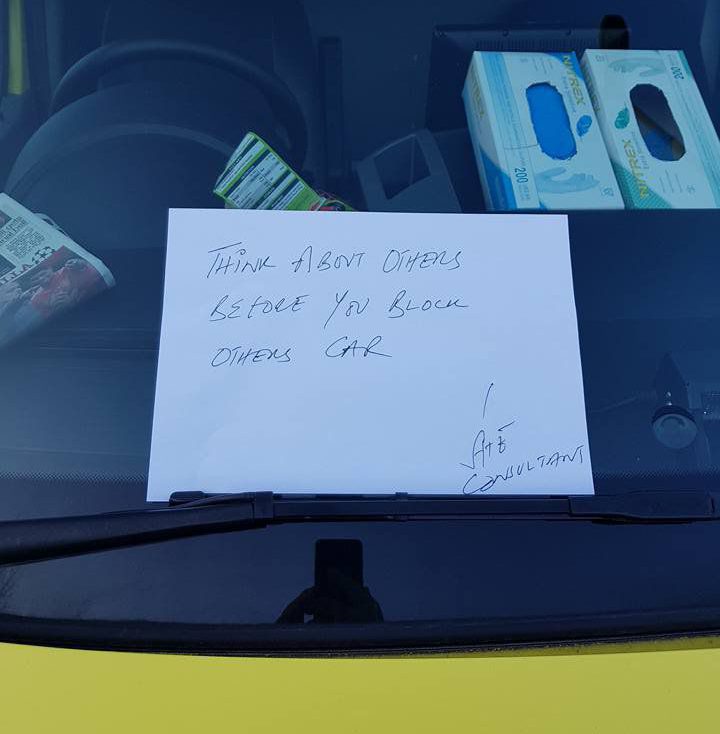 THINK ABOUT OTHERS
BEFORE YOU BLOCK
OTHERS CAR
A+E
CONSULTANT
NITREX
NITREX
200
200
NITREX